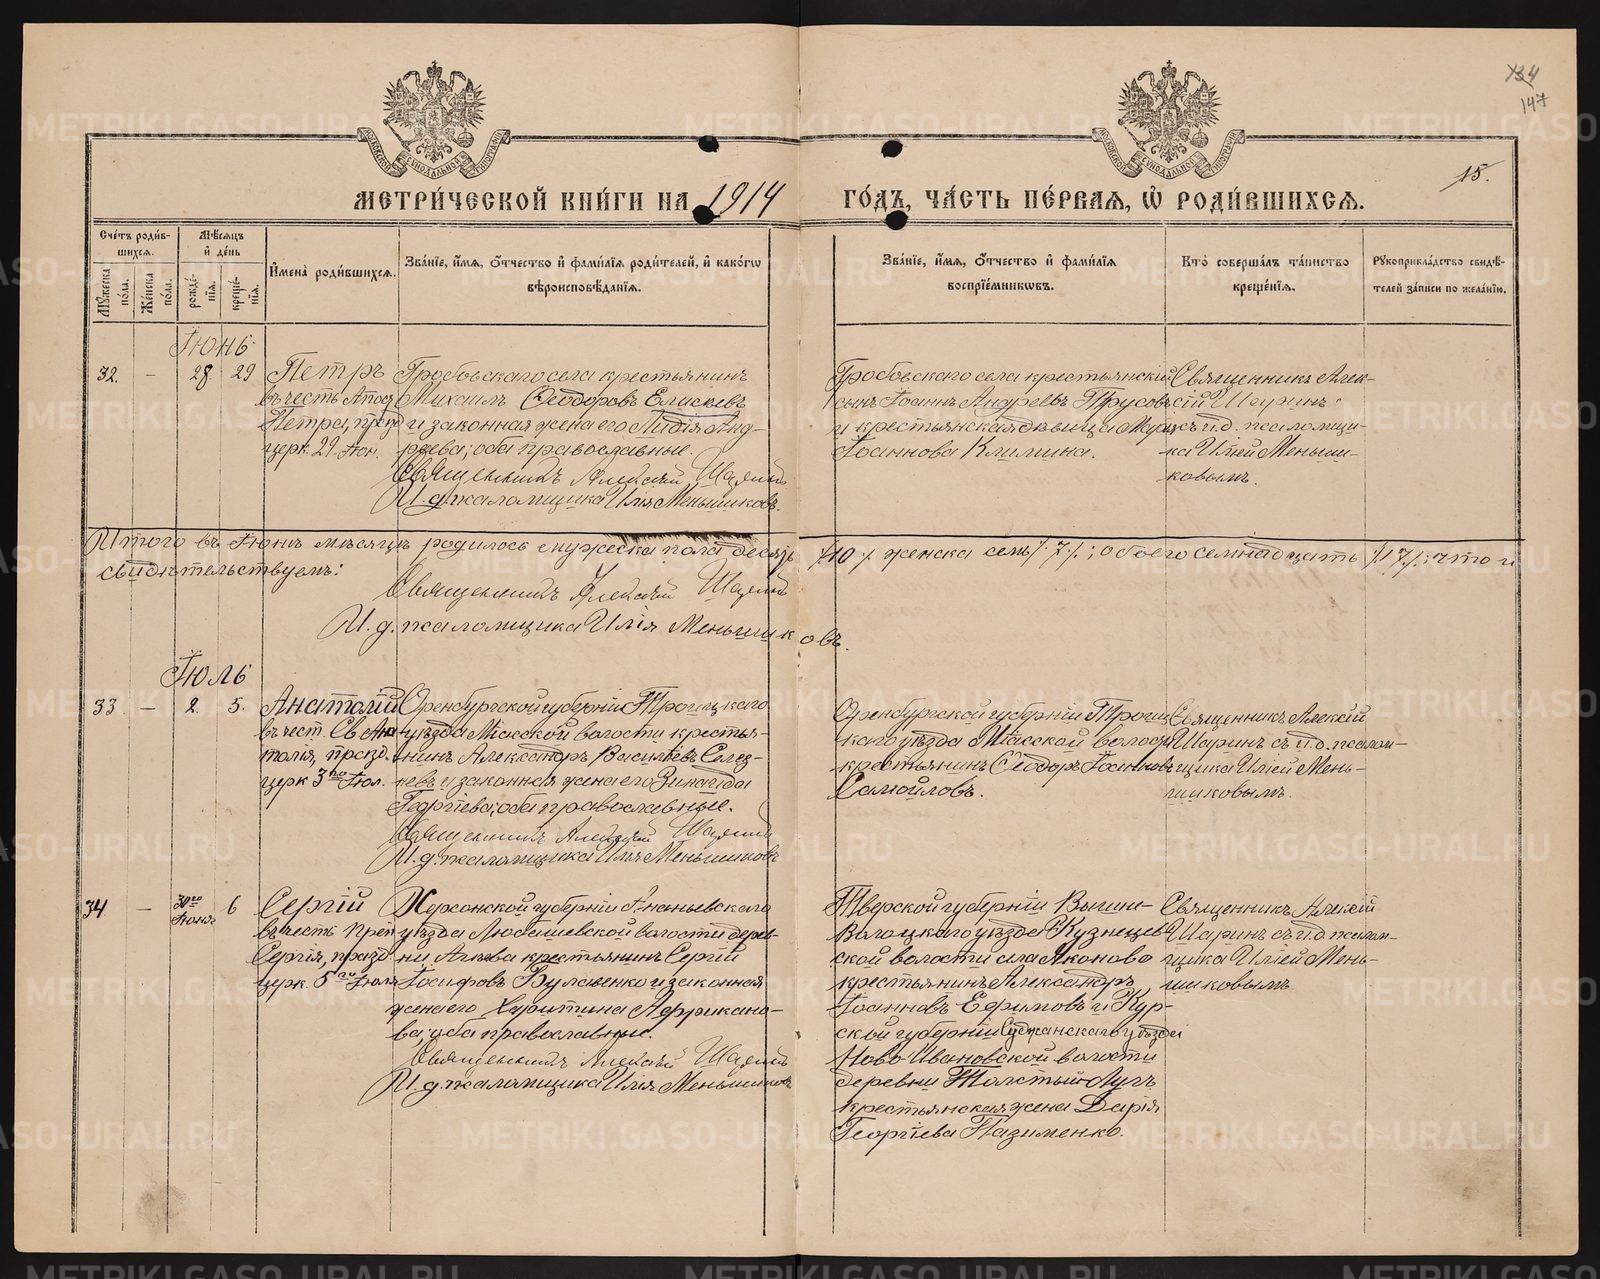 134
147
15.
МЕТРИ́ЧЕСКОЙ КНИ́ГИ НА 1914 ГО́ДЪ, ЧА́СТЬ ПЕ́РВАЯ, Ѽ РОДИ́ВШИХСЯ.
Счетъ роди́вшихся.
Мѹжеска по́ла.
Же́нска по́ла.
Мѣсяцъ и де́нь
рожде́нія.
креще́нія.
Имена̀ роди́вшихся.
Зва́ніе, и́мя, о́тчество и фами́лія роди́телей, и како́гѡ
вѣроисповѣ́данія.
Зва́ніе, и́мя, о́тчество и фами́лія
воспріе́мникѡвъ.
Кто̀ соверша́лъ та́инство
креще́нія.
Рѹкоприкла́дство свидѣ́-
телей за́писи по жела́нію.
Іюнь
32. — 28 29
Петръ
въ честь Апост
Петра, празд
церк. 29 Іюн.
Гробовскаго села крестьянинъ
Михаилъ Ѳеодоровъ Елисѣевъ
и законная жена его Лидія Анд-
реева; оба православные.
Священникъ Алексій Шаринъ
И. д. псаломщика Илія Меньшиковъ.
Гробовскаго села крестьянскій
сынъ Іоаннъ Андреевъ Трусовъ
и крестьянская дѣвица
Іоаннова Климина.
Священникъ Алек-
сій Шаринъ
съ и. д. псаломщи-
ка Иліей Меньши-
ковымъ.
Итого въ Іюнѣ мѣсяцѣ родилось мужеска пола десять /10/. женска семь /7/.; обоего семнадцать /17/.; что и
свидѣтельствуемъ:
Священникъ Алексій Шаринъ
И. д. псаломщика Илія Меньшиковъ.
Іюль
33 — 2. 5.
Анатолій
въ чест. Св Ана-
толія, празд.
церк 3го Іюл.
Оренбургской губерніи Троицкаго
уѣзда Міасской волости крестья-
нинъ Александръ Васильевъ Селез-
невъ и законная жена его Зинаида
Георгіева; оба православные.
Священникъ Алексій Шаринъ
И. д. псаломщика Илія Меньшиковъ
Оренбургской губерніи Троиц
каго уѣзда Міасской волос
крестьянинъ Ѳеодоръ Іоанновъ
Самойловъ.
Священникъ Алексій
Шаринъ съ и. д. псалом-
щика Иліей Мень-
шиковымъ.
34 — 30го Іюня 6
Сергій
въ честь Преп
Сергія, празд
церк. 5го Іюля
Херсонской губерніи Ананьевскаго
уѣзда Любашевской волости дерев-
ни крестьянинъ Сергій
Іосифовъ Булавенко и законная
жена его Харитина Африкано-
ва; оба православные.
Священникъ Алексій Шаринъ
И. д. псаломщика Илія Меньшиковъ
Тверской губерніи Вышне-
Волоцкаго уѣзда Кузнецов
ской волости села Яконово
крестьянинъ Александръ
Іоанновъ Ефимовъ и Кур-
ской губерніи Суджанскаго уѣзда
Ново-Ивановской волости
деревни Толстый-Лугъ
крестьянская жена Дарія
Георгіева Пазименко.
Священникъ Алексій
Шаринъ съ и. д. псалом-
щика Иліей Мень-
шиковымъ
METRIKI.GASO-URAL.RU